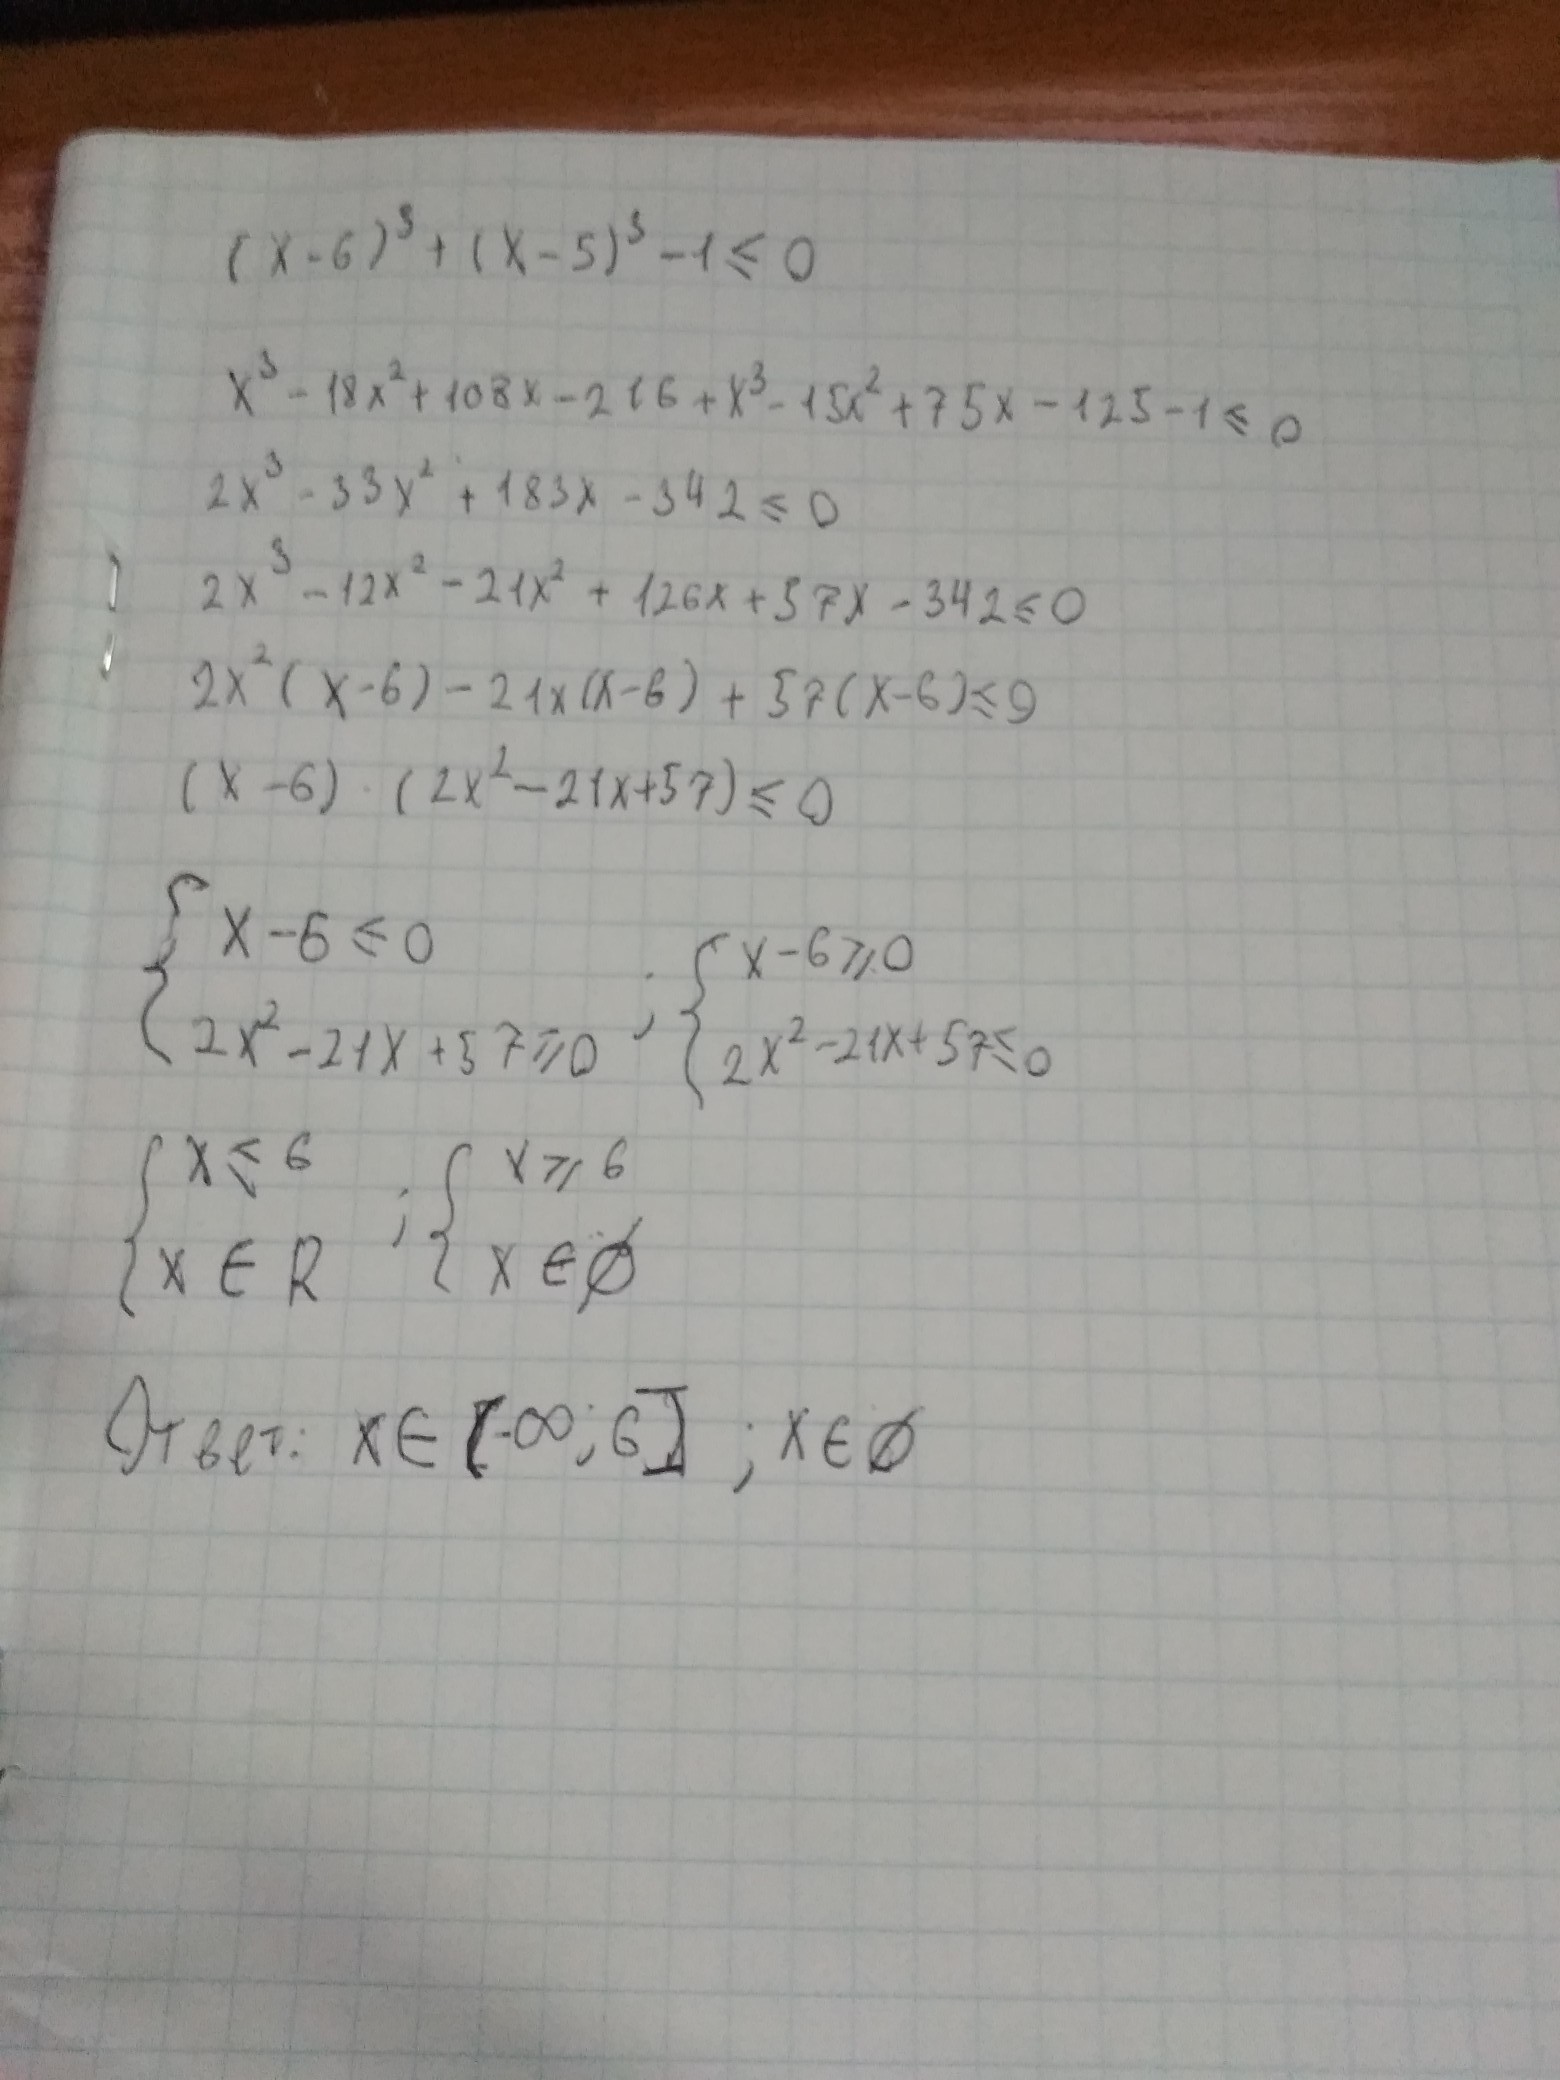 (x-6)³+(x-5)³-1≤0
x³-18x²+108x-216+x³-15x²+75x-125-1≤0
2x³-33x²+183x-342≤0
2x³-12x²-21x²+126x+57x-342≤0
2x²(x-6)-21x(x-6)+57(x-6)≤0
(x-6)·(2x²-21x+57)≤0
{x-6≤0 ; {x-6⩾0
2x²-21x+57⩾0 2x²-21x+57≤0
{x≤6 ; {x⩾6
x∈R x∈∅
Ответ: x∈[-∞;6] ; x∈∅